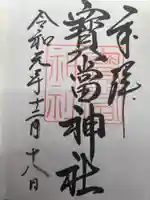 奉拝
寳當神社
令和元年十二月十八日